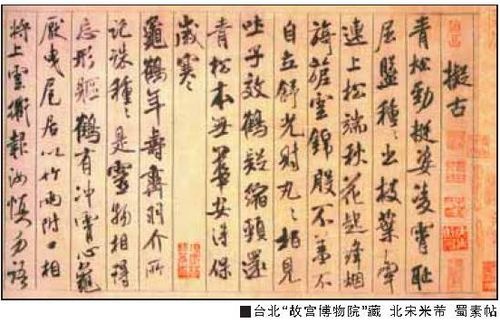 擬古
青松勁挺姿凌霄恥
屈盤種〻出枝葉牽
連上松端秋花起絳烟
旖旎雲錦殷不羞不
自立舒光射丸〻柏見
吐子效鶴疑縮頸還
青松本無華安得保
歲寒
龜鶴年壽齊羽介所
託殊種〻是靈物相得
忘形軀鶴有沖霄心龜
厭曳尾居以竹兩附口相
將上雲衢報汝慎勿語
■台北“故宫博物院”藏 北宋米芾 蜀素帖